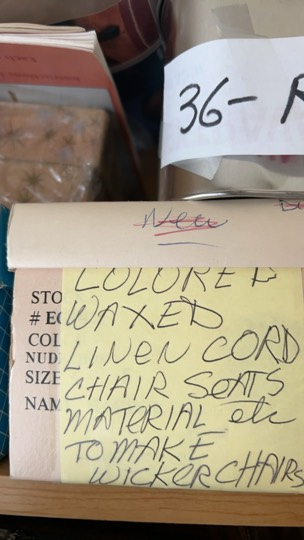 36-
New
COLORED
WAXED
LINEN CORD
CHAIR SEATS
MATERIAL etc
TO MAKE
WICKER CHAIRS
STO
# EC
COL
NUD
SIZE
NAM